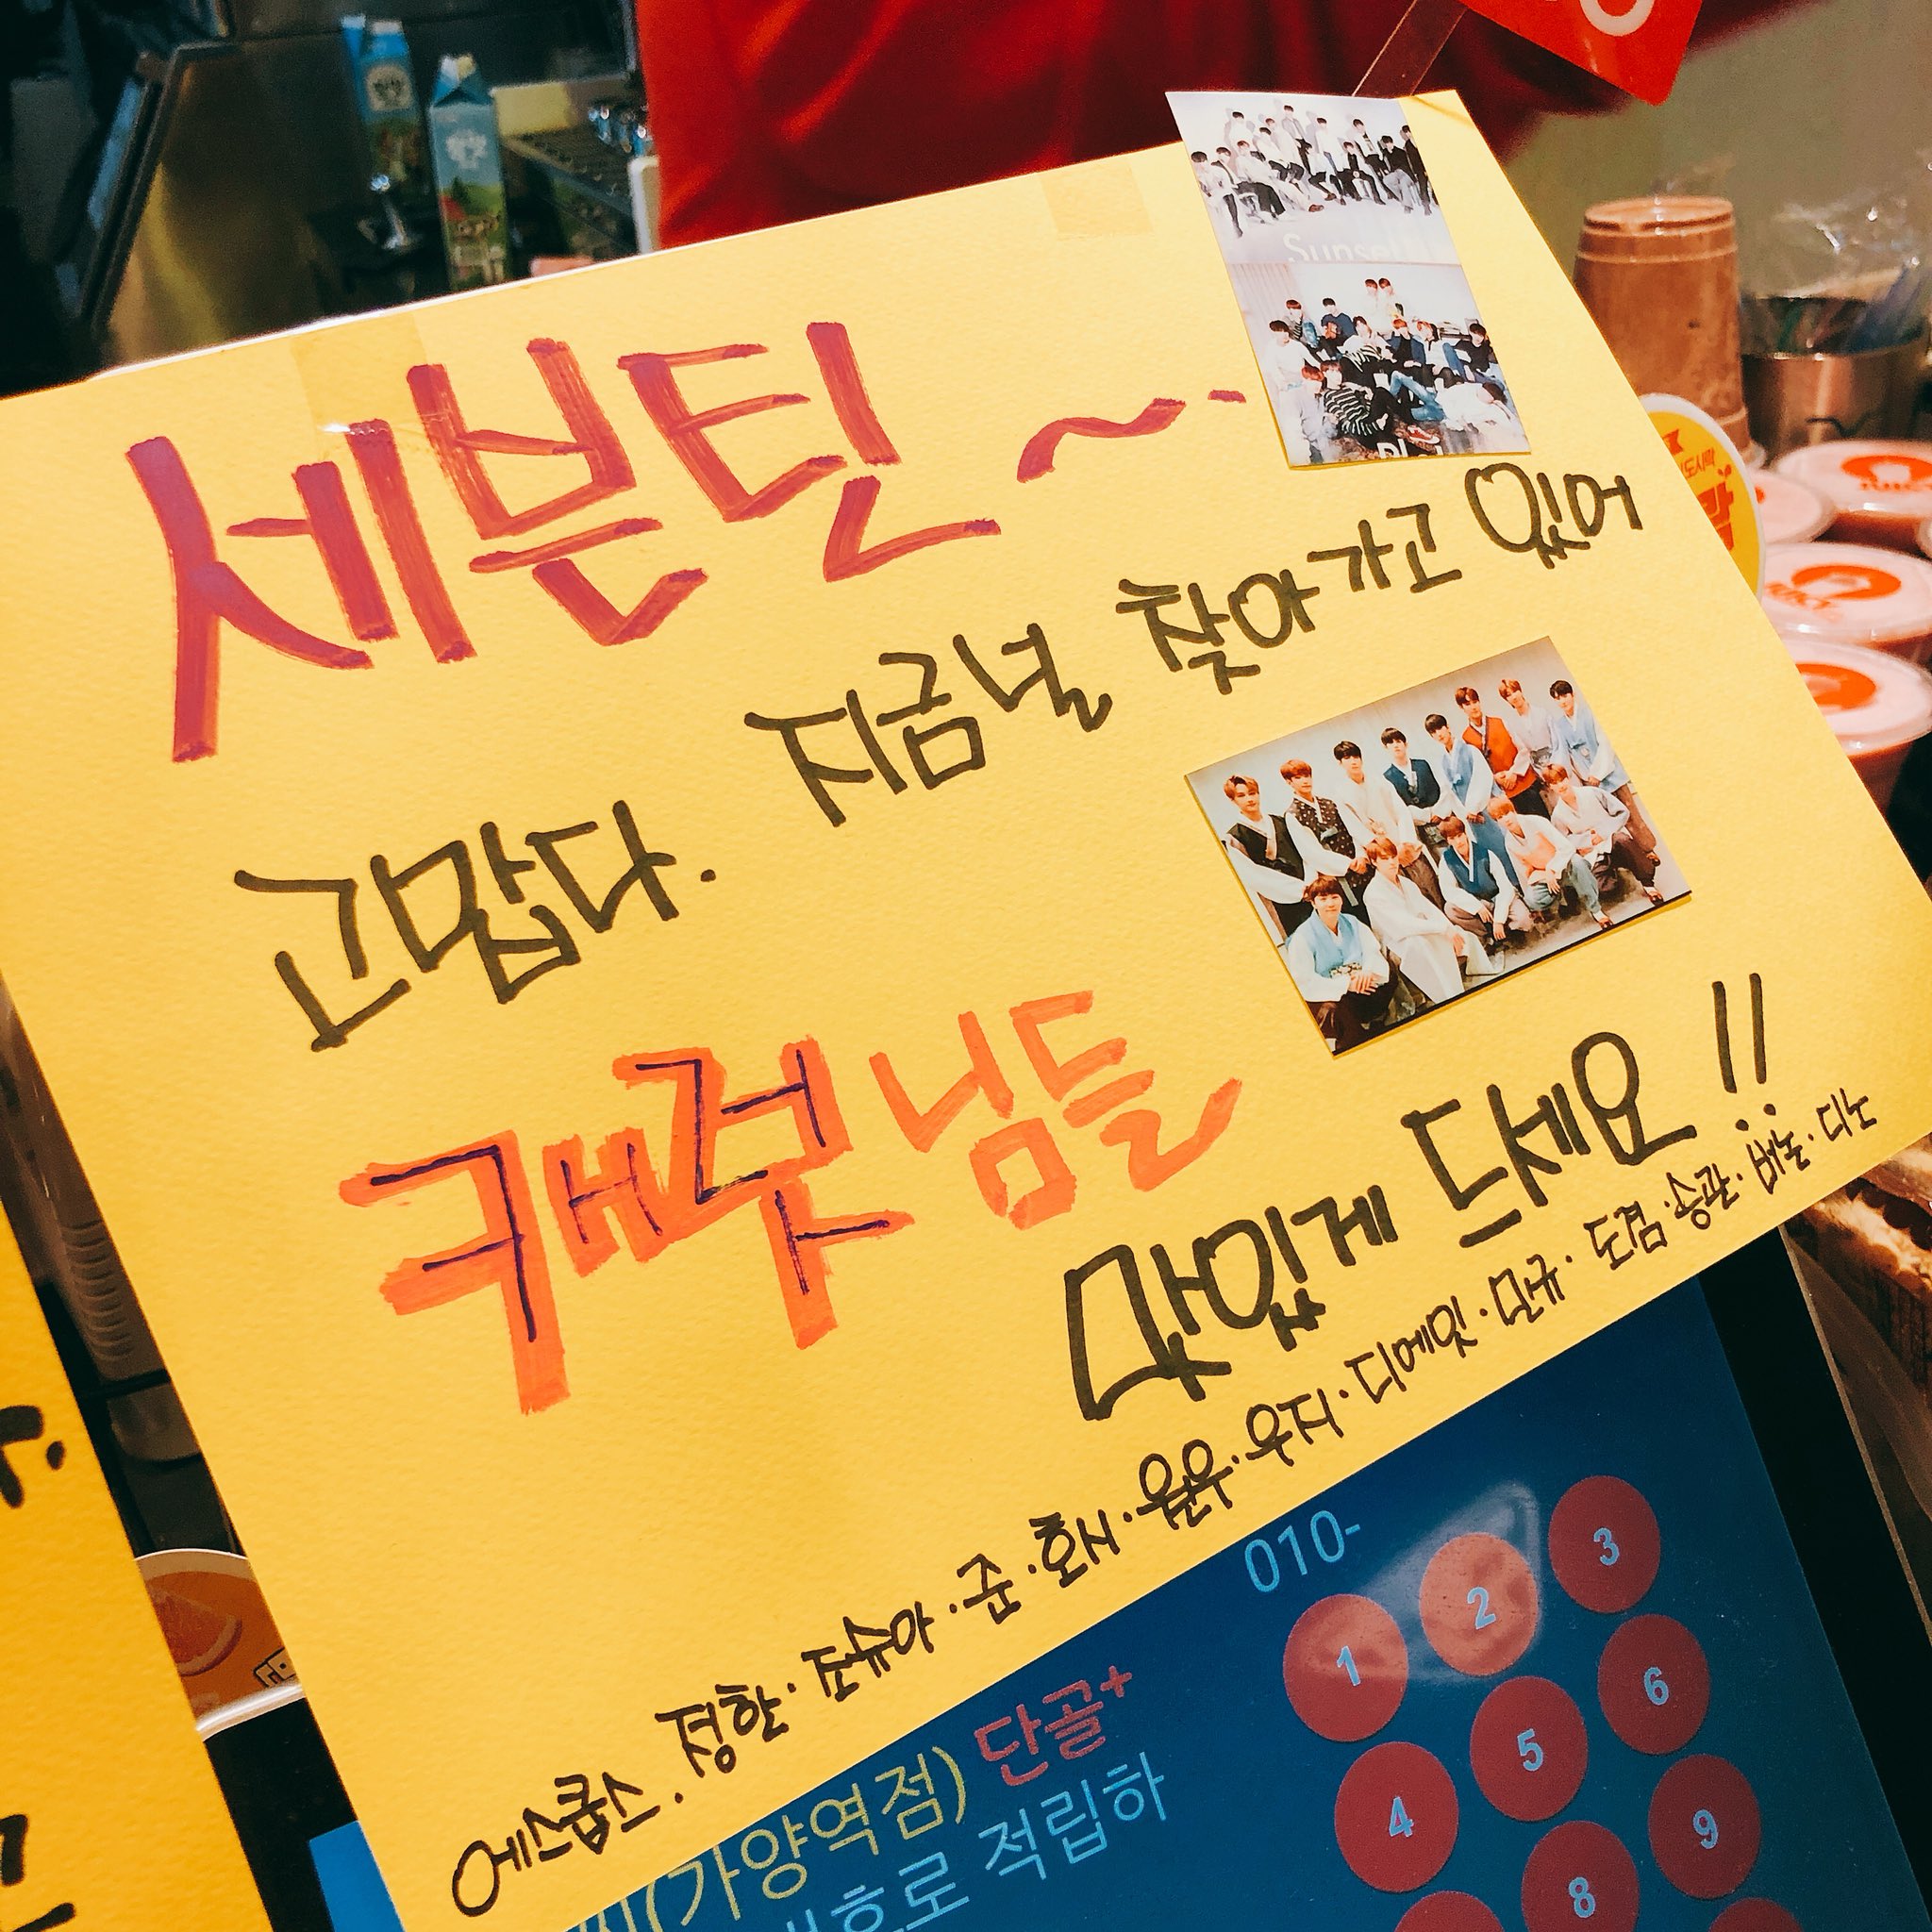 세븐틴~
지금 널 찾아가고 있어
고맙다.
캐럿님들
맛있게 드세요!!
에스쿱스. 정한. 조슈아. 준. 호시. 원우. 우지. 디에잇. 민규. 도겸. 승관. 버논. 디노
010-
1 2 3
4 5 6
8 9
(가양역점) 단골+
호로 적립하